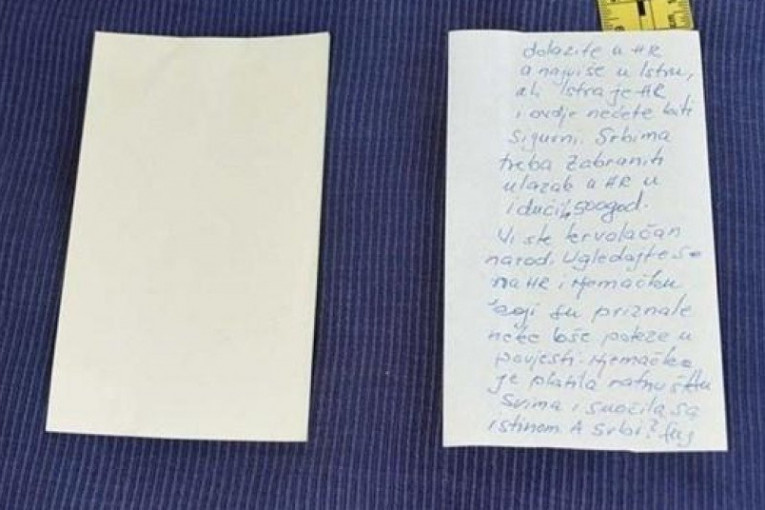 dolazite u HR
a najviše u Istru,
ali Istra je HR
i ovdje nećete biti
sigurni. Srbima
treba zabraniti
ulazak u HR u
idućih 500 god.
Vi ste krvoločan
narod. Ugledajte se
na HR i Njemačku
koji su priznale
neke loše poteze u
povjesti. Njemačka
je platila ratnu štetu
svima i suočila sa
istinom. A Srbi? fuj